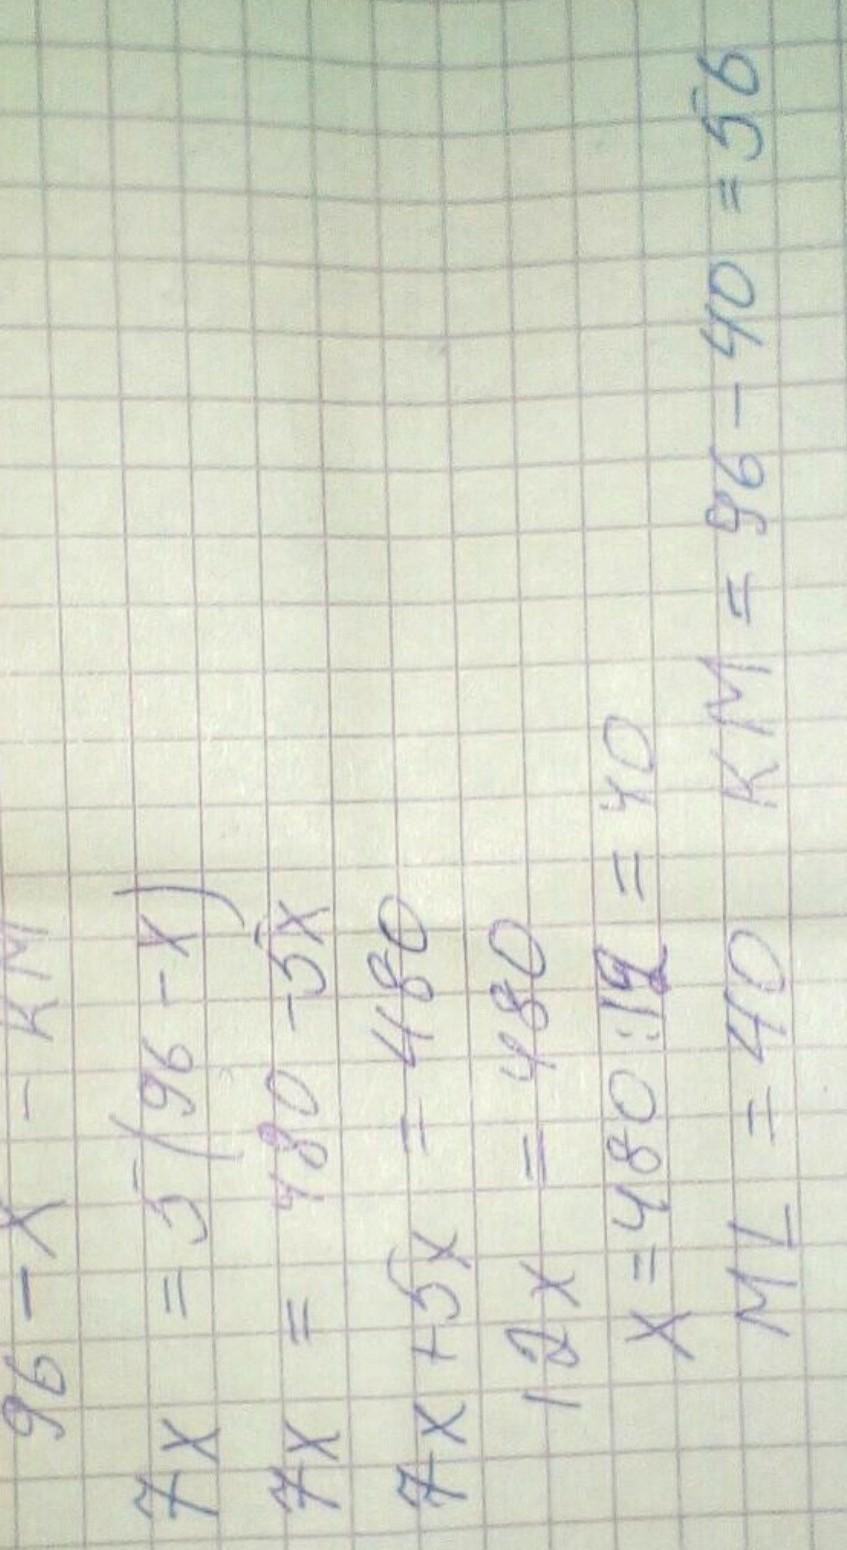 96 - x - KM
7x = 5(96 - x)
7x = 480 - 5x
7x + 5x = 480
12x = 480
x = 480 : 12 = 40
ML = 40 KM = 96 - 40 = 56